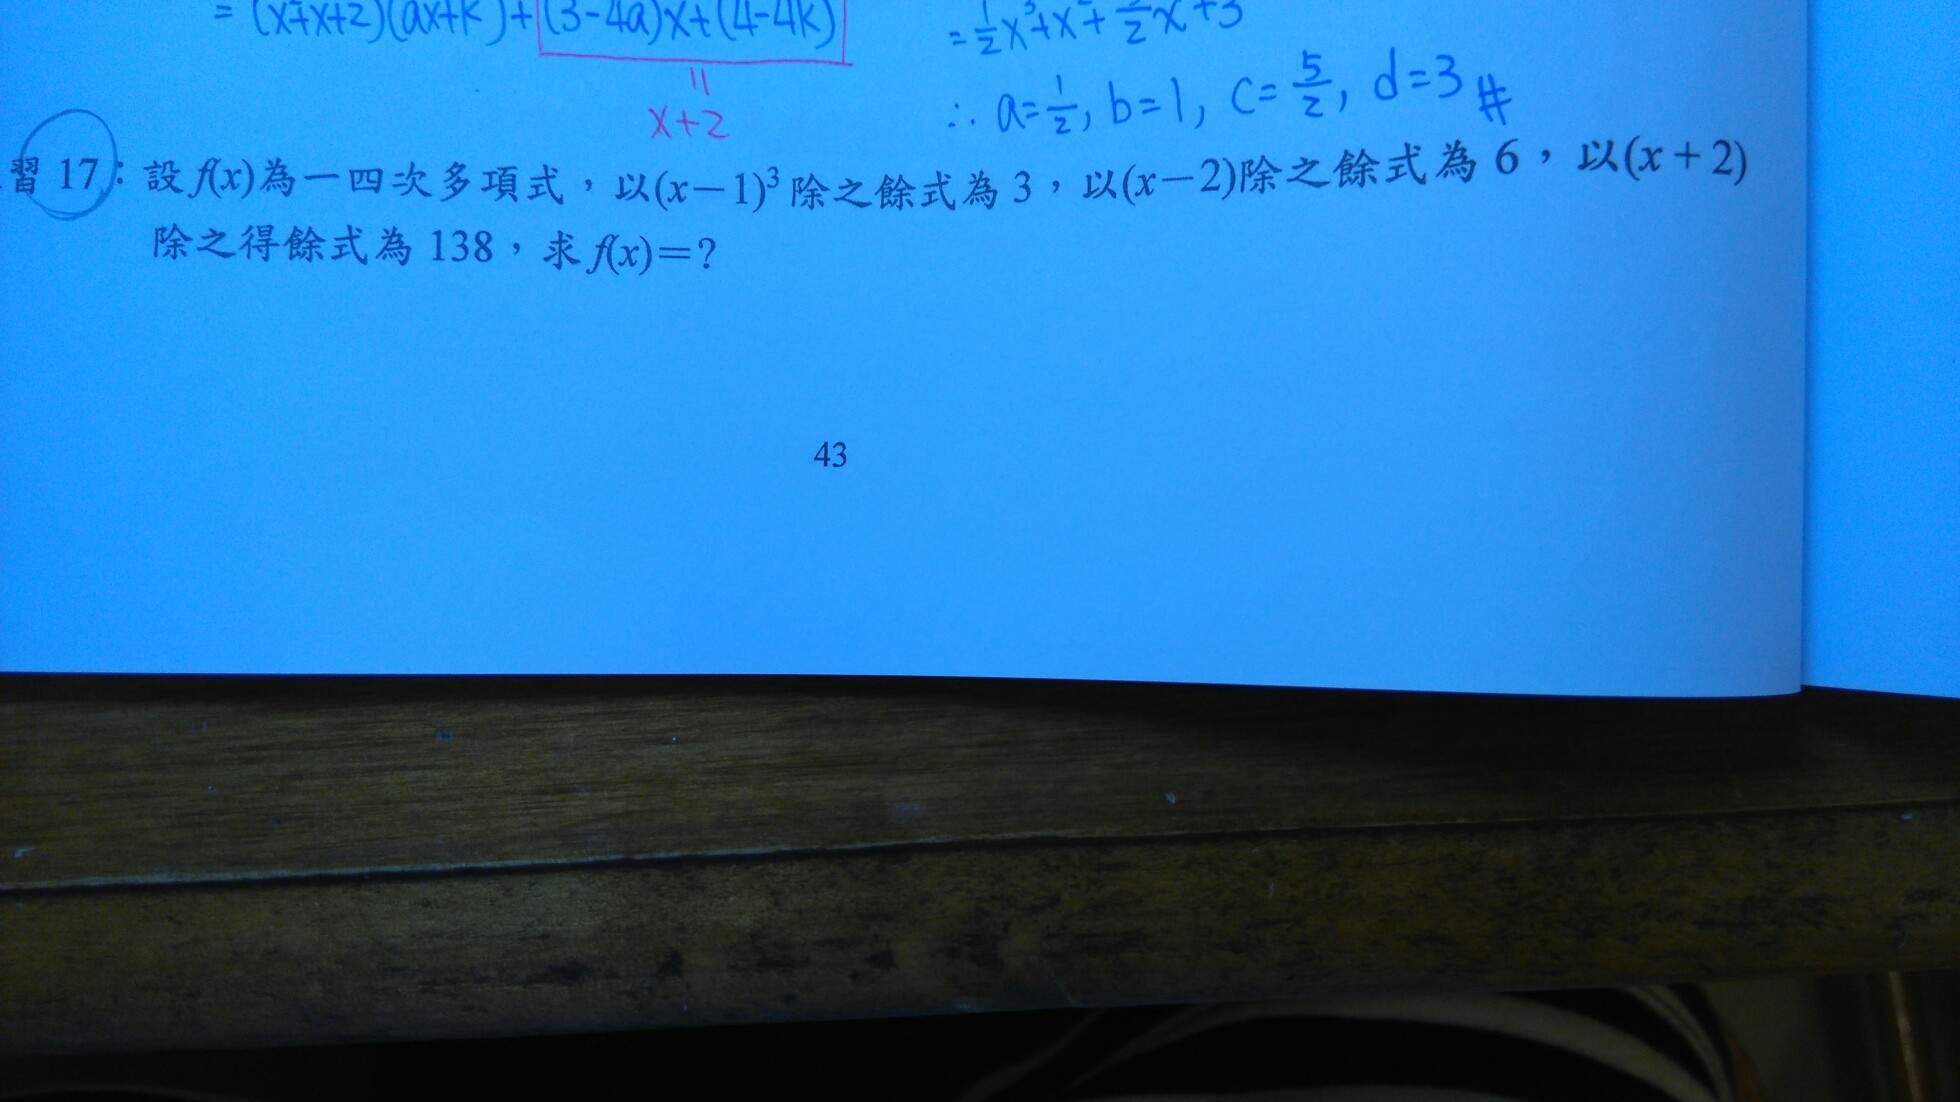 = (x²+x+2)(ax+k)+(3-4a)x+(4-4k)
=
x+2
= 1/2x³+x²+5/2x+3
∴ a=1/2, b=1, c=5/2, d=3 #
習 17：設f(x)為一四次多項式，以(x－1)³除之餘式為 3，以(x－2)除之餘式為 6，以(x＋2)
除之得餘式為 138，求f(x)＝?
43